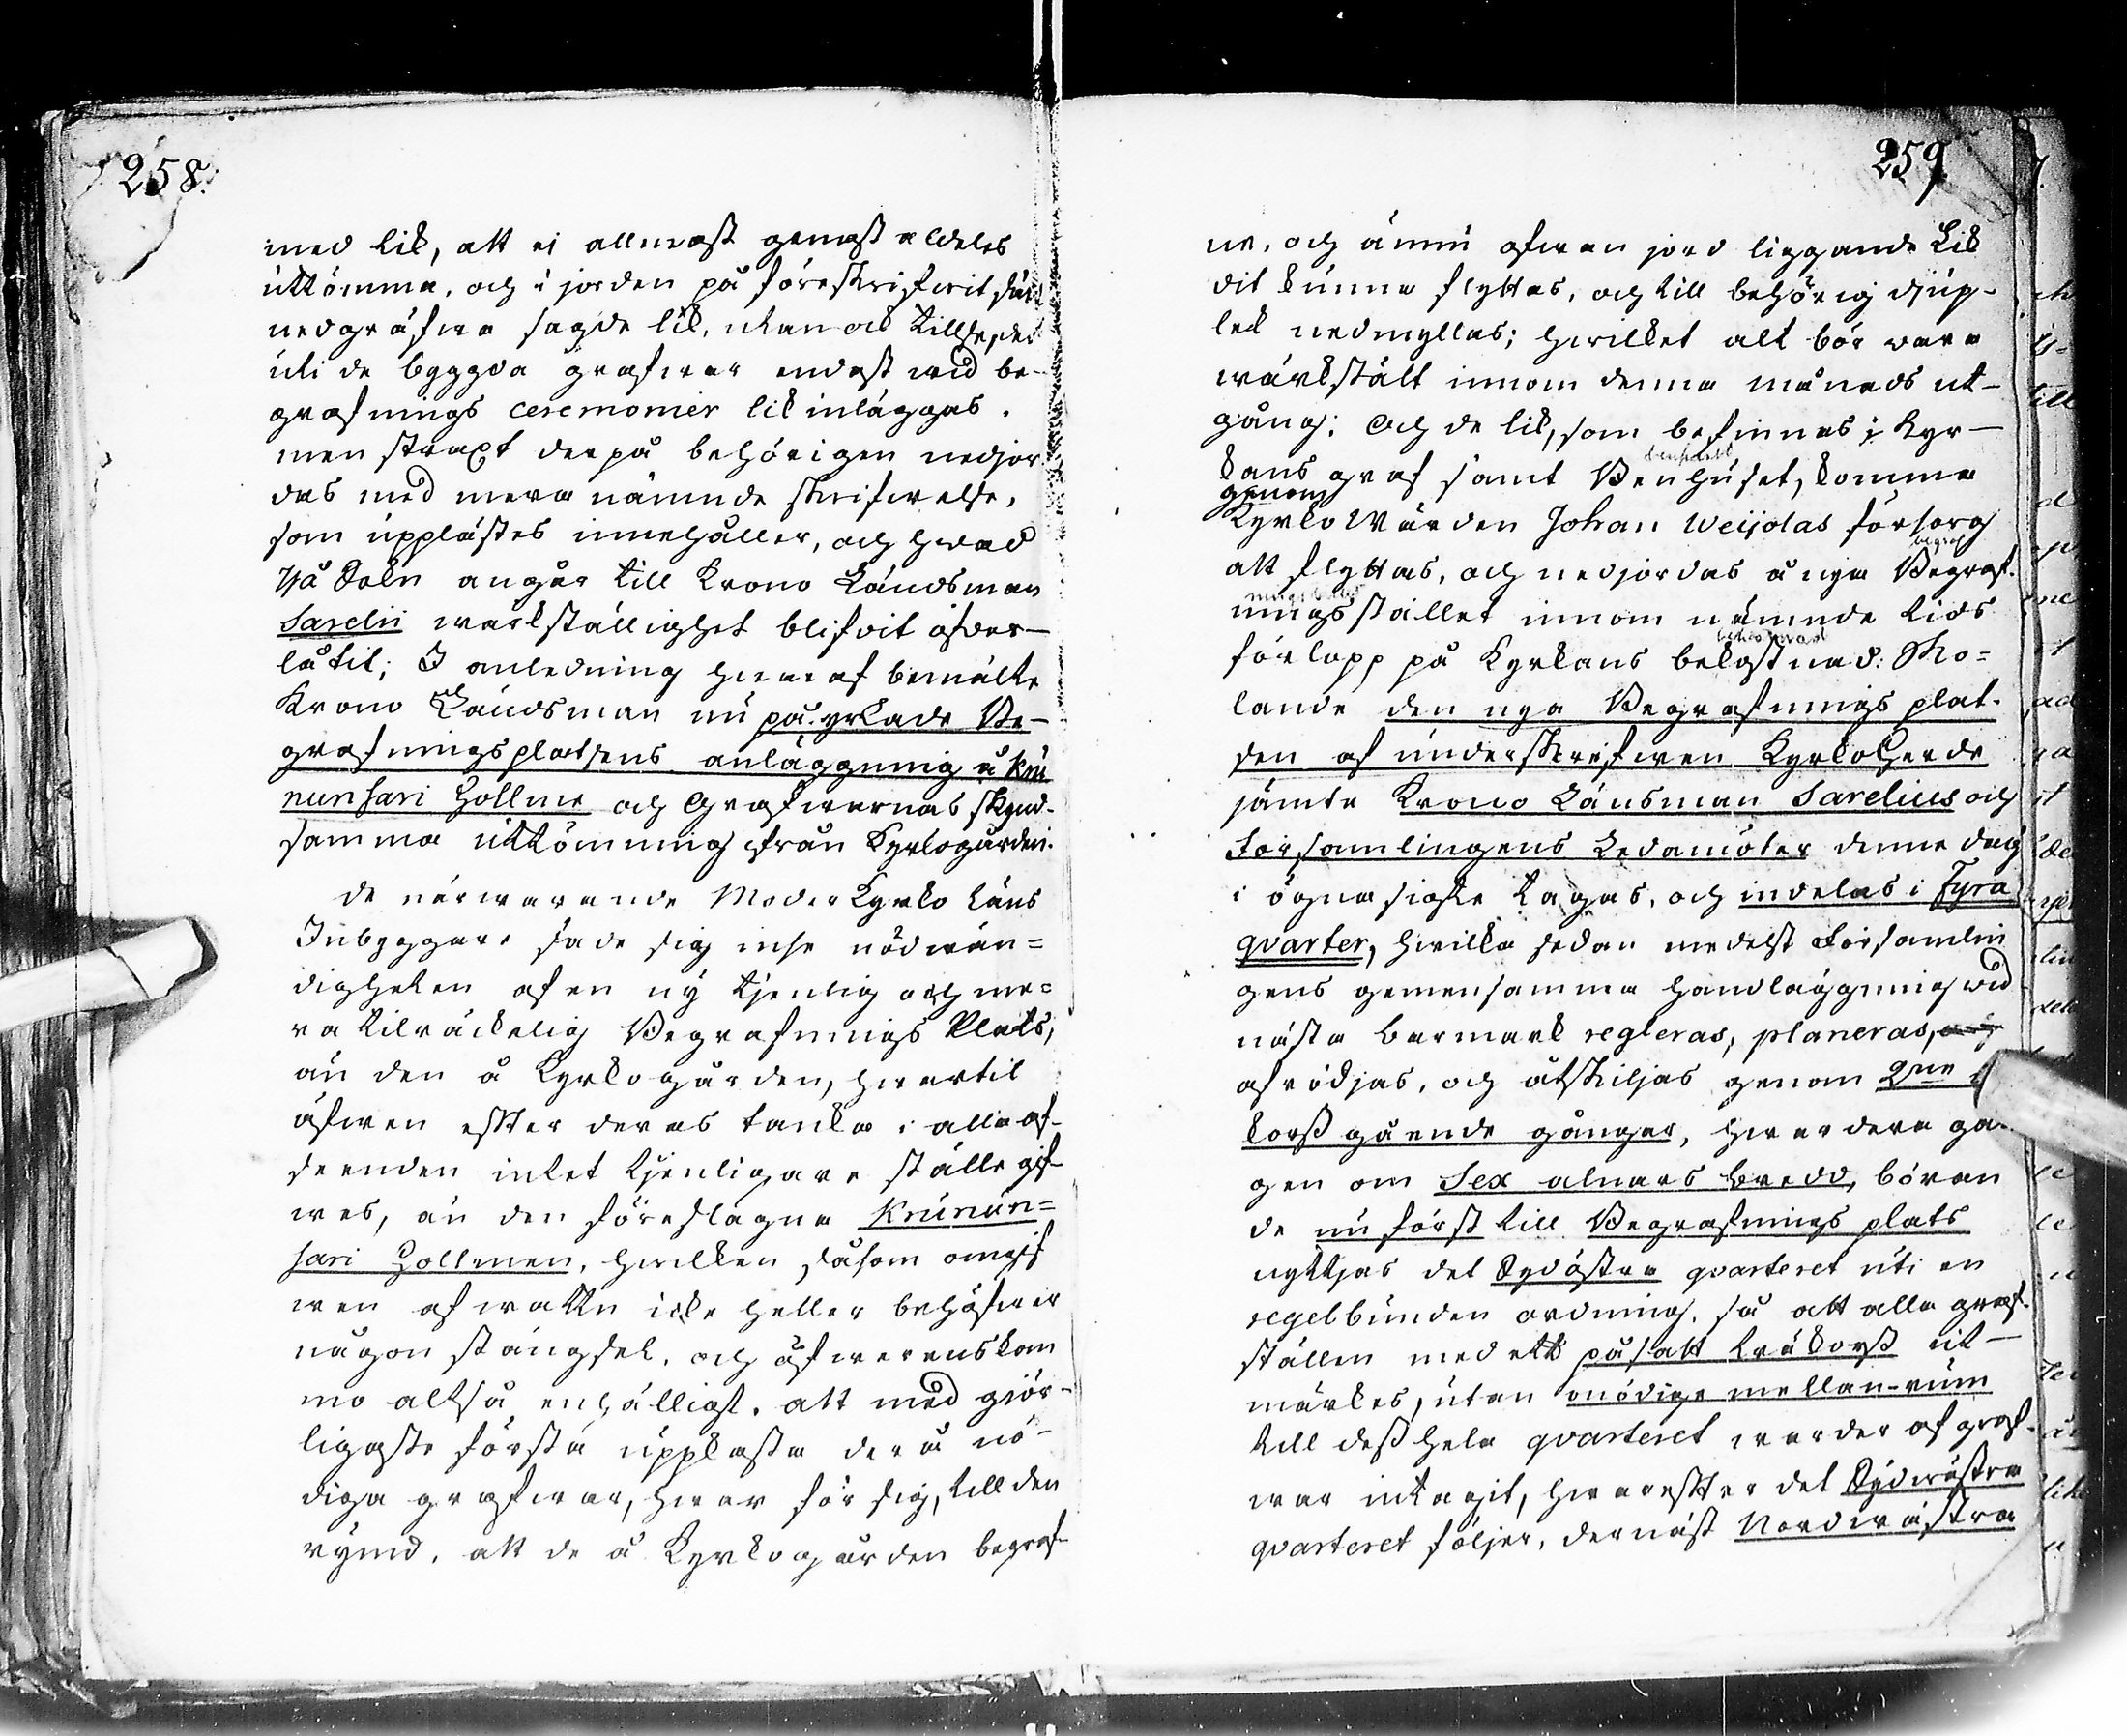 258.
med lik, att ej allenast genast aldeles
uttömma, och i jorden på föreskrifwit sätt
nedgräfwa sagde lik, utan ock tillse, det
uti de byggda grafwar endast wid be-
grafnings ceremonier lik inläggas,
men straxt derpå behörigen nedjor-
das med mera nämnde skrifwelse,
som upplästes innehåller, och hwad
På Soln angår till Krono Länsman
Sarelii wärkställighet blifvit öfwer-
låtit; I anledning hwaraf bemälte
Krono Länsman nu påyrkade Be-
grafningsplatsens anläggning å Knu
nunsari hollme och Grafwarnas skynd-
samma uttömning ifrån Kyrkogården.
De närwarande Moder Kyrko Läns
Inbyggare sade sig inse nödwän=
digheten af en ny tjenlig och me=
ra tilräckelig Begrafnings Plats,
än den å Kyrkogården, hwartil
äfwen efter deras tanka i alla af-
seenden intet tjenligare ställe gif-
wes, än den föreslagna Knunun=
sari Hollmen, hwilken såsom omgif
wen af watten icke heller behöfwer
någon stängsel, och öfwerenskom
mo altså enhälligt, att med giör-
ligaste första uppkasta derå nö-
diga grafwar, hwar för sig, till den
rymd, att de å Kyrkogården begraf-
259
ne, och ännu ofwan jord liggande Lik
dit kunna flyttas, och till behörig djup-
lek nedmyllas; hwilket alt bör wara
wärkstält innom denna månads ut-
gång; Och de lik, som befinnas i Kyr-
kans graf samt Benhuset, komma
genom
Kyrko Wärden Johan Weijolas försorg
att flyttas, och nedjordas å nya Begraf-
ningsstället innom nämnde tids
förlopp på Kyrkans bekostnad: Sko=
lande den nya Begrafnings plat-
sen af underskrefwen Kyrkoherde
jämte Krono Länsman Sarelius och
Församlingens Ledamöter denne dag
i ögnasigte tagas, och indelas i Fyra
qvarter, hwilka sedan medelst Församlin
gens gemensamma handläggning wid
nästa barmark regleras, planeras, och
afrödjas, och åtskiljas genom 2ne i
korss gående gångar, hwardera gå
gen om Sex alnars bredd, böran
de nu först till Begrafnings plats
nyttjas det Sydöstra qvarteret uti en
regelbunden ordning, så att alla graf-
ställen med ett påsatt träkorss ut-
märkes, utan onödige mellan-rum
till dess hela qvarteret warder af graf-
war intagit, hwarefter det Sydwästra
qvarteret följer, dernäst Nordwästra